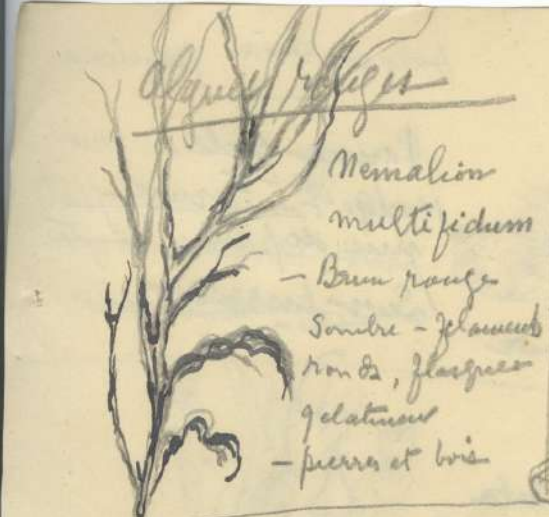 Algues rouges
Nemalion
multifidum
- Brun rouge
sombre - filaments
ronds, flasques
gelatineux
- pierres et bois